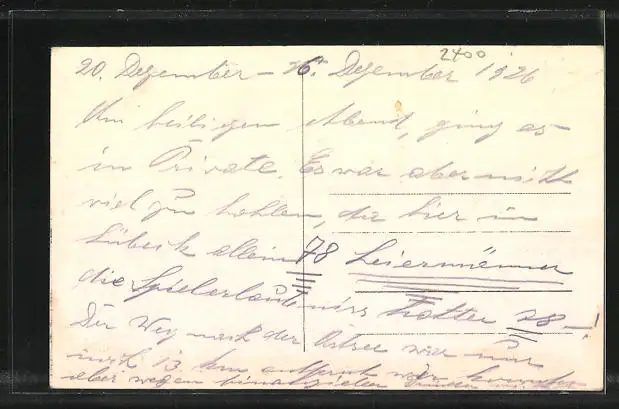 2400
20. Dezember – 26. Dezember 1926
Am heiligen Abend, ging es
in Private. Es war aber nicht
viel zu hohlen, da hier in
Lübeck allein 78 Leiermänner
die Spielerlaubniss hatten 78 – !
Der Weg nach der Ostsee war nur
noch 13 km entfernt wir konnten
aber wegen